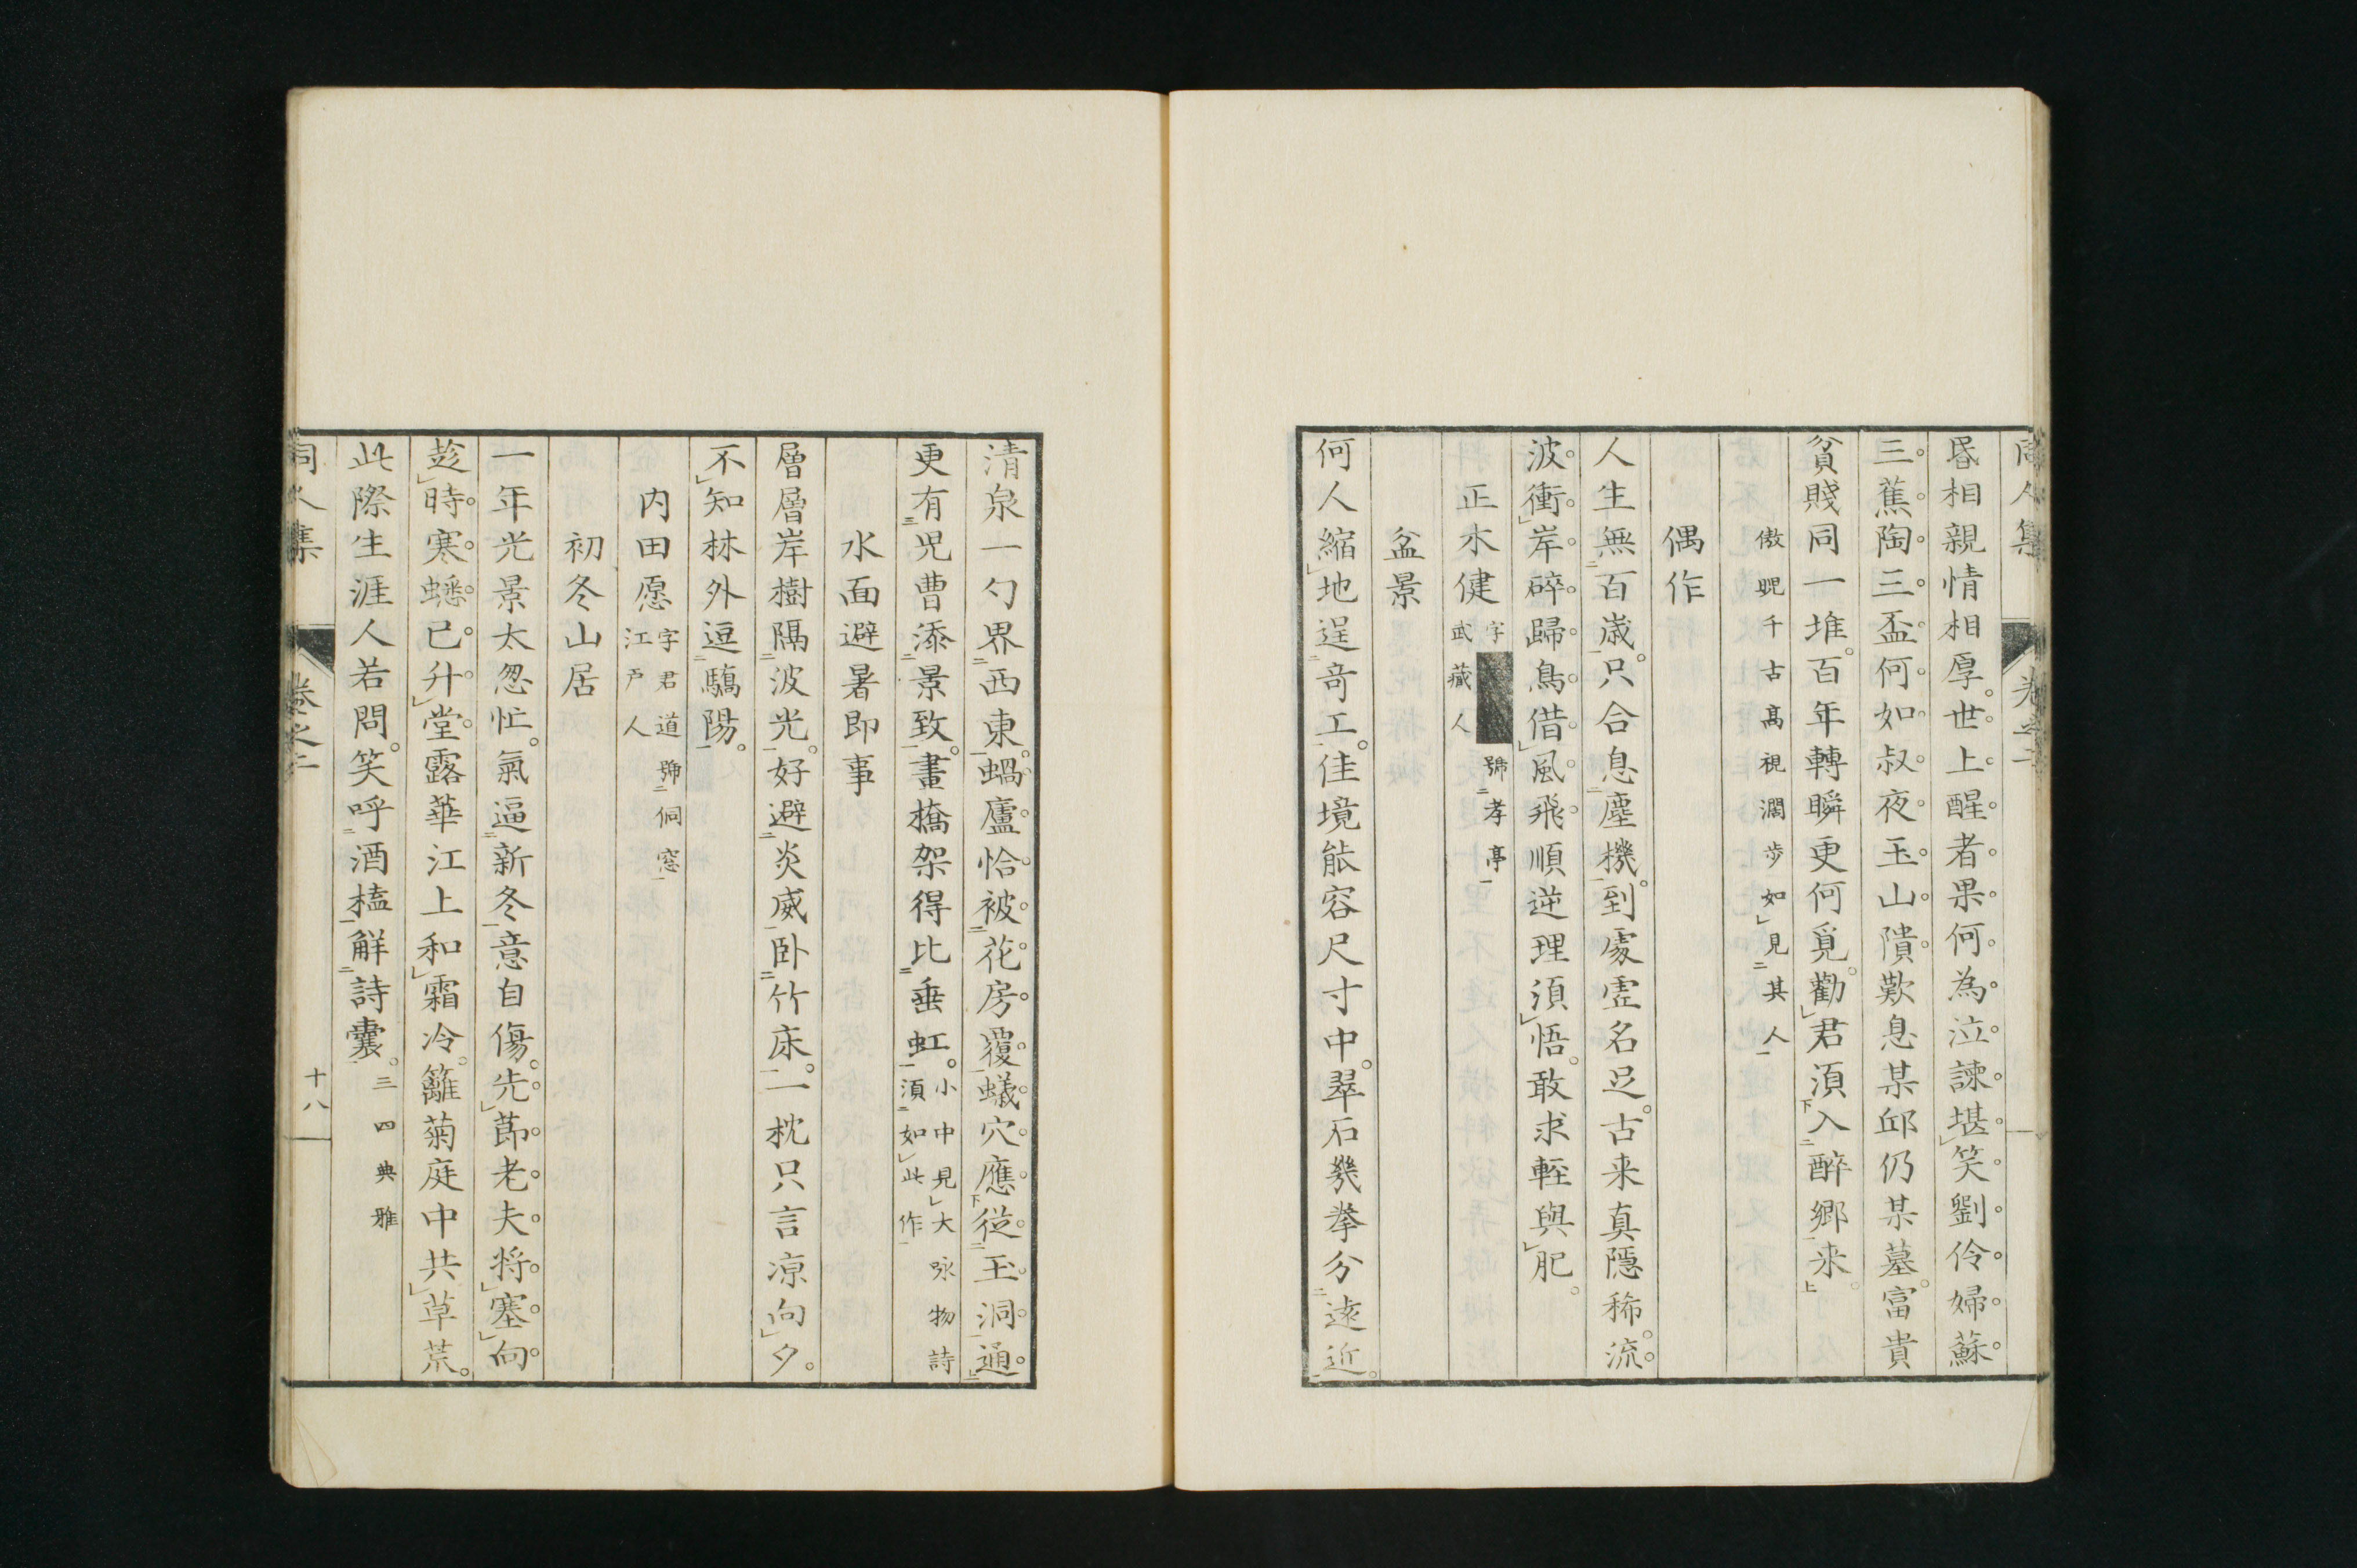 同人集 卷之二
昏相親情相厚。世上醒者果何為。泣諫堪笑劉伶婦。蘇
三蕉陶三盃。何如叔夜玉山隤。歎息某邱仍某墓。富貴
貧賤同一堆。百年轉瞬更何覓。勸君須入醉鄉来。
傲睨千古高視濶步如見其人
偶作
人生無百歳。只合息塵機。到處虗名足。古来真隱稀。流
波衝岸碎。歸鳥借風飛。順逆理須悟。敢求輊與肥。
正木健 字 號孝亭
武藏人
盆景
何人縮地逞竒工。佳境能容尺寸中。翠石幾拳分遠近。
清泉一勺界西東。蝸廬恰被花房覆。蟻穴應從玉洞通。
更有児曹添景致。畫橋架得比垂虹。小中見大咏物詩
須如此作
水面避暑即事
層層岸樹隔波光。好避炎威卧竹床。一枕只言凉向夕。
不知林外逗驕陽。
内田愿 字君道號侗窓
江戸人
初冬山居
一年光景太怱忙。氣逼新冬意自傷。先莭老夫将塞向。
趁時寒蟋已升堂。露華江上和霜冷。籬菊庭中共草荒。
此際生涯人若問。笑呼酒榼解詩囊。三四典雅
同人集 卷之二 十八